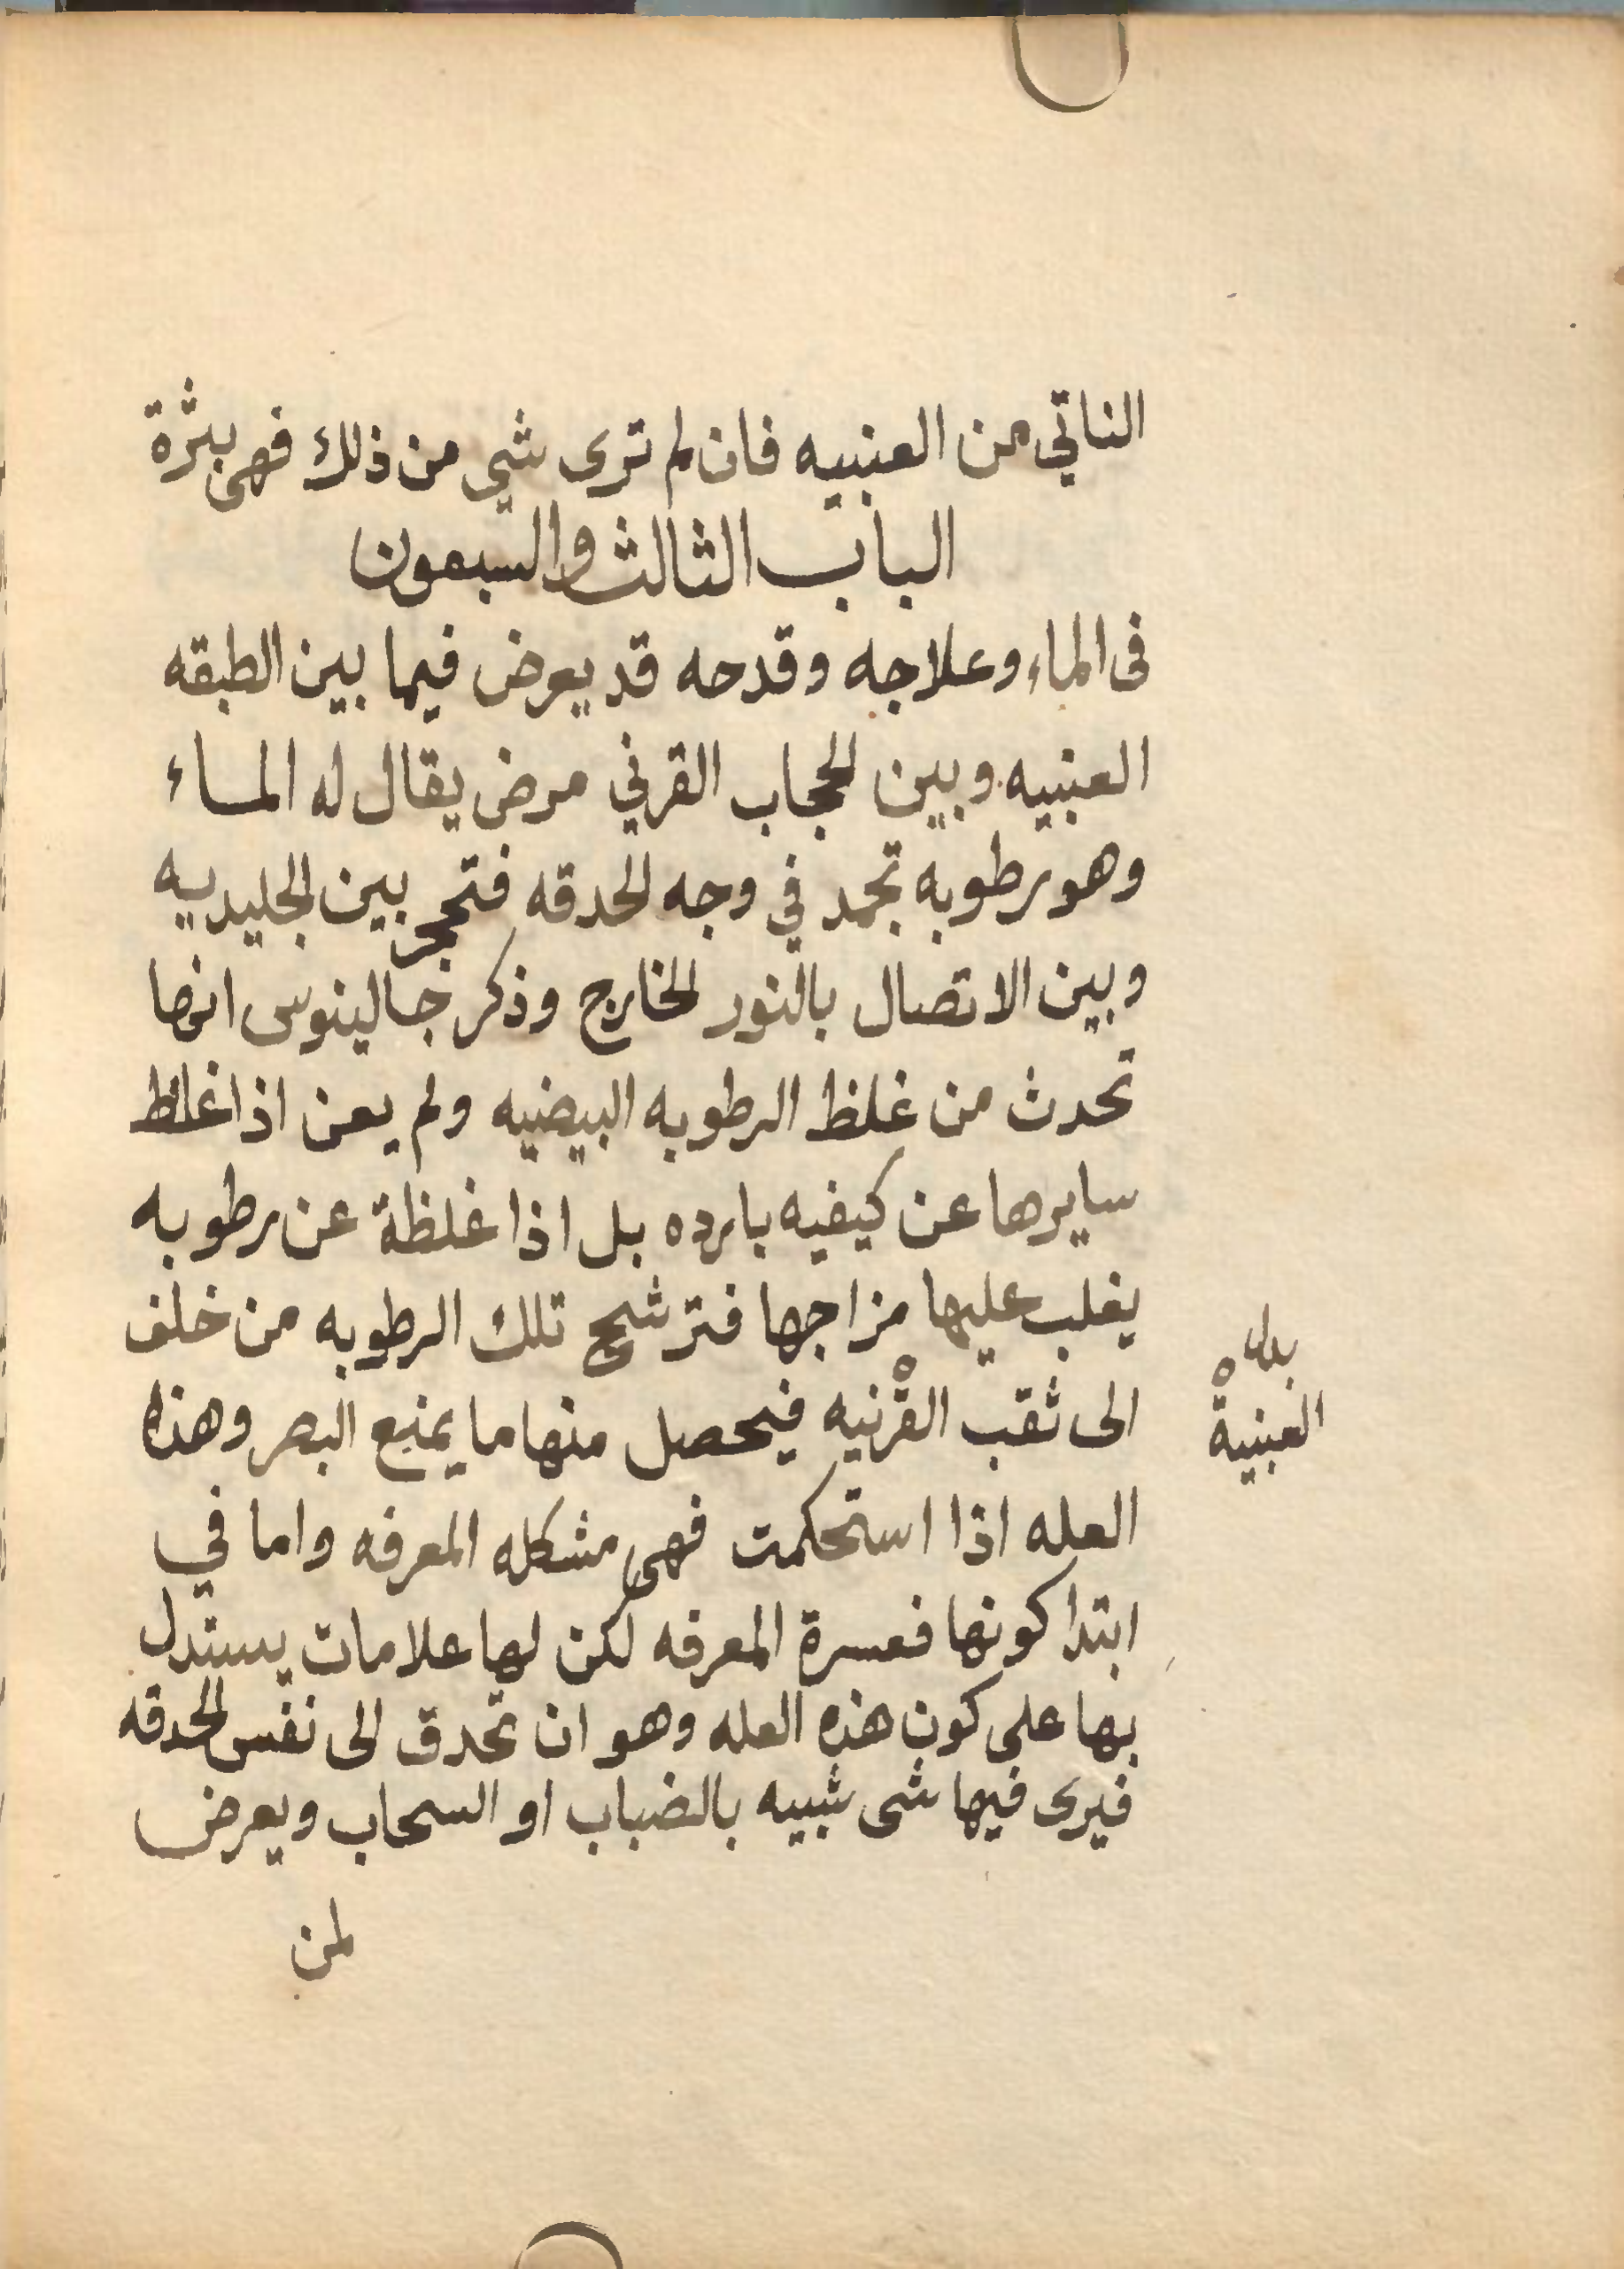 الناتي من العنبيه فان لم ترى شي من ذلك فهى بثرة
الباب الثالث والسبعون
فى الماء وعلاجه وقدحه قد يعرض فيما بين الطبقه
العنبيه وبين الحجاب القرني مرض يقال له الماء
وهو رطوبه تجمد في وجه الحدقه فتحجر بين الجليديه
وبين الاتصال بالنور الخارج وذكر جالينوس انها
تحدث من غلظ الرطوبه البيضيه ولم يعن اذا غلظ
سايرها عن كيفيه بارده بل اذا غلظة عن رطوبه
يغلب عليها مزاجها فترشح تلك الرطوبه من خلف
الى ثقب القرنيه فيحصل منها ما يمنع البصر وهذه
العنبية
العله اذا استحكمت فهى مشكله المعرفه واما في
ابتدا كونها فعسرة المعرفه لكن لها علامات يستدل
بها على كون هذه العله وهو ان تحدق الى نفس الحدقه
فيرى فيها شى شبيه بالضباب او السحاب ويعرض
لمن